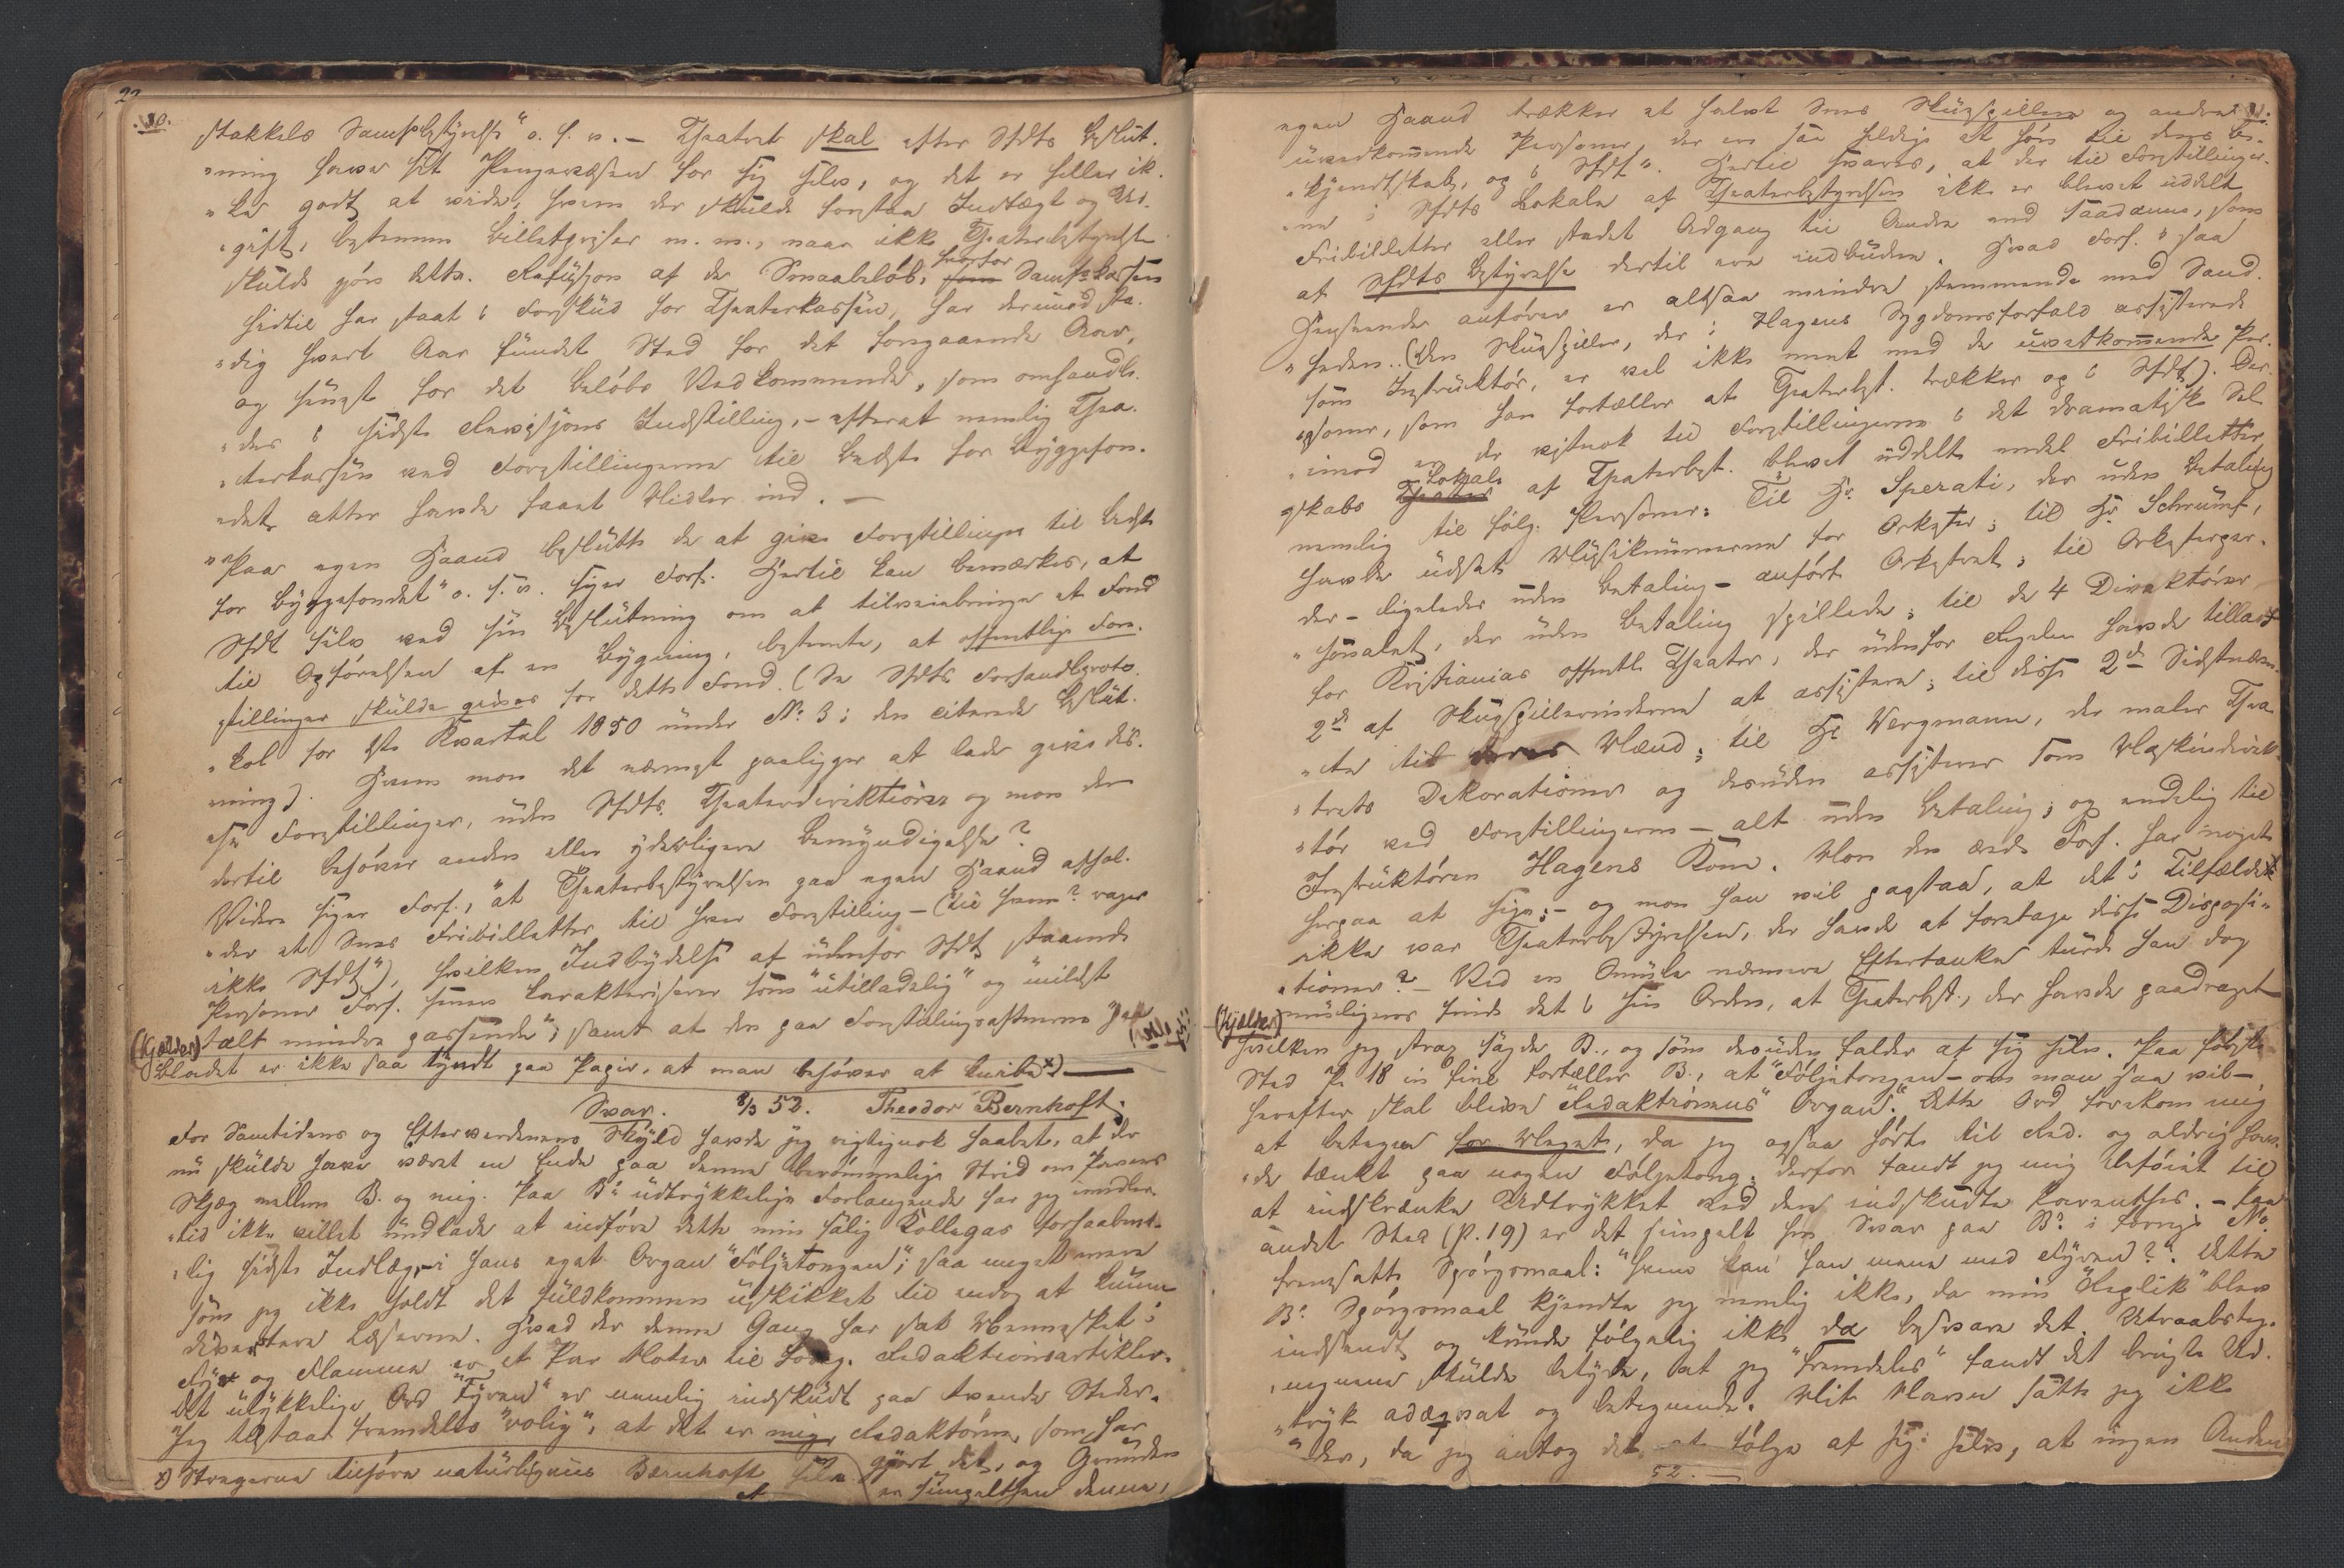 22
30.
stakkels Samfsbestyrelse" o. s. v. – Theatret skal efter Sfdts Beslut-
"ning have sit Pengevæsen for sig selv, og det er heller ik-
"ke godt at vide, hvem der skulde forstaa Indtægt og Ud-
"gift, bestemme Billetpriser m. m., naar ikke Theaterbestyrelsen
skulde gjøre dette. Refusjon af de Smaabeløb, hvorfor Samfskassen
hidtil har staat i Forskud for Theaterkassen, har derimod sta-
"dig hvert Aar fundet Sted for det foregaaende Aar,
og senest for det Beløbs Vedkommende, som omhandle-
"des i sidste Revisjons Indstilling, – efterat nemlig Thea-
"terkassen ved Forestillingerne til Bedste for Byggefon-
"det atter havde faaet Midler ind. –
"Paa egen Haand besluttede at give Forestillinger til Bedste
for Byggefondet" o. s. v. siger Forf. Hertil kan bemærkes, at
Sfdt selv ved sin Beslutning om at tilveiebringe et Fond
til Opførelsen af en Bygning, bestemte, at offentlige Fore-
stillinger skulde gives for dette Fond. (Se Sfdts Forhandlproto-
"kol for 1ste Kvartal 1850 under No. 3: den citerede Beslut-
ning). Hvem mon det nærmest paaligger at lade give dis-
se Forestillinger, uden Sfdts Theaterdirektører og mon de
dertil behøver anden eller yderligere Bemyndigelse?
Videre siger Forf., "at Theaterbestyrelsen paa egen Haand afhol-
"der et Snes Fribilletter til hver Forestilling – (til hvem? rager
ikke Sfdt"), hvilken Indbydelse af udenfor Sfdt staaende
Personer Forf. senere karakteriserer som "utilladelig" og "mildest
talt mindre passende", samt at den paa Forestillingsaftenerne paa
(Kjælder)
Bladet er ikke saa tyndt paa Papir, at man behøver at knibe x) —
Svar. 8/3 52. Theodor Bernhoft.
For Samtidens og Efterverdenens Skyld havde jeg rigtignok haabet, at der
nu skulde have været en Ende paa denne berømmelige Strid om Pavens
Skjæg mellem B. og mig. Paa B's udtrykkelige Forlangende har jeg imidler-
"tid ikke villet undlade at indføre dette min salig Kollegas forhaabent-
"lig sidste Indlæg, – i hans eget Organ "Føljetongen"; saa meget mere
som jeg ikke holdt det fuldkommen uskikket til endog at kunne
divertere Læserne. Hvad der denne Gang har sat Mennesket i
Fyr og Flamme er et Par Noter til forrig. Redaktionsartikler.
Det ulykkelige Ord "Fyren" er nemlig indskudt paa tvende Steder.
Jeg tilstaar fremdeles "rolig", at det er mig, Redaktøren, som har
gjort det, og Grunden
er simpelthen denne,
x) Stregerne tilhøre naturligviis Bernhoft selv
egen Haand trækker et halvt Snes Skuespillere og andre
uvedkommende Personer, der ere saa heldige at høre til deres Be-
"kjendtskab, op i Sfdt". Hertil svares, at der til Forestillinger-
"ne i Sfdts Lokale af Theaterbestyrelsen ikke er blevet uddelt
Fribilletter eller stedet Adgang til Andre end saadanne, som
af Sfdts Bestyrelse dertil ere indbudne. Hvad Forf. i saa
Henseende anfører er altsaa mindre stemmende med Sand-
"heden.. (Den Skuespiller, der i Hagens Sygdomsforfald assisterede
som Instruktør, er vel ikke ment med de uvedkommende Per-
"soner, som han fortæller at Theaterbest. trækker op i Sfdt). Der-
"imod er der vistnok til Forestillingerne i det dramatiske Sel-
skabs Lokale af Theaterbest. blevet uddelt endel Fribilletter,
nemlig til følg. Personer: Til Hr. Sperati, der uden Betaling
havde udsat Musiknumrene for Orkester; til Hr. Schrumf,
der – ligeledes uden Betaling – anførte Orkestret; til Orkesterper-
"sonalet, der uden Betaling spillede; til de 4 Direktører
for Kristianias offentl. Theater, der udenfor Regelen havde tilladt
2de af Skuespillerinderne at assistere; til disse 2de Sidstnævn-
"te til deres Mænd; til Hr. Wergmann, der maler Thea-
"trets Dekorationer og desuden assisterer som Maskindirek-
"tør ved Forestillingerne – alt uden Betaling; og endelig til
Instruktøren Hagens Kone. Mon den ærede Forf. har noget
herpaa at sige; – og mon han vil paastaa, at det i Tilfældet
ikke var Theaterbestyrelsen, der havde at foretage disse Disposi-
"tioner? – Ved en Smule nærmere Eftertanke turde han dog
muligens finde det i sin Orden, at Theaterbest., der havde paadraget
(Kjælder)
hvilken jeg strax sagde B., og som desuden falder af sig selv. Paa første
Sted P. 18 in fine fortæller B., at "Føljetongen – om man saa vil –
herefter skal blive "Redaktionens" Organ". Dette Ord forekom mig
at betegne for Meget, da jeg ogsaa hørte til Red. og aldrig hav-
"de tænkt paa nogen Føljetong; derfor fandt jeg mig beføiet til
at indskrænke Udtrykket ved den indskudte Parenthes. – Paa
andet Sted (P. 19) er det simpelt hen Svar paa B's i forrige No.
fremsatte Spørgsmaal: "Hvem kan han mene med Fyren?". Dette
B's Spørgsmaal kjendte jeg nemlig ikke, da min "Replik" blev
indsendt og kunde følgelig ikke da besvare det. Udraabsteg-
"nene skulde betyde, at jeg "fremdeles" fandt det brugte Ud-
"tryk adæqvat og betegnende. Mit Navn satte jeg ikke
"der, da jeg antog det at følge af sig selv, at ingen Anden
52. —